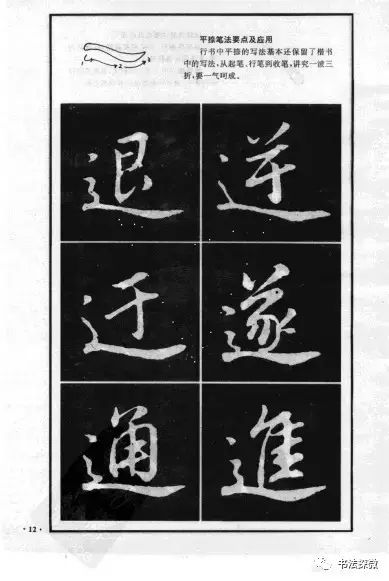 平捺笔法要点及应用
行书中平捺的写法基本还保留了楷书
中的写法,从起笔、行笔到收笔,讲究一波三
折,要一气呵成。
1 2 3
退 逆
迂 遂
通 進
·12·
书法探教